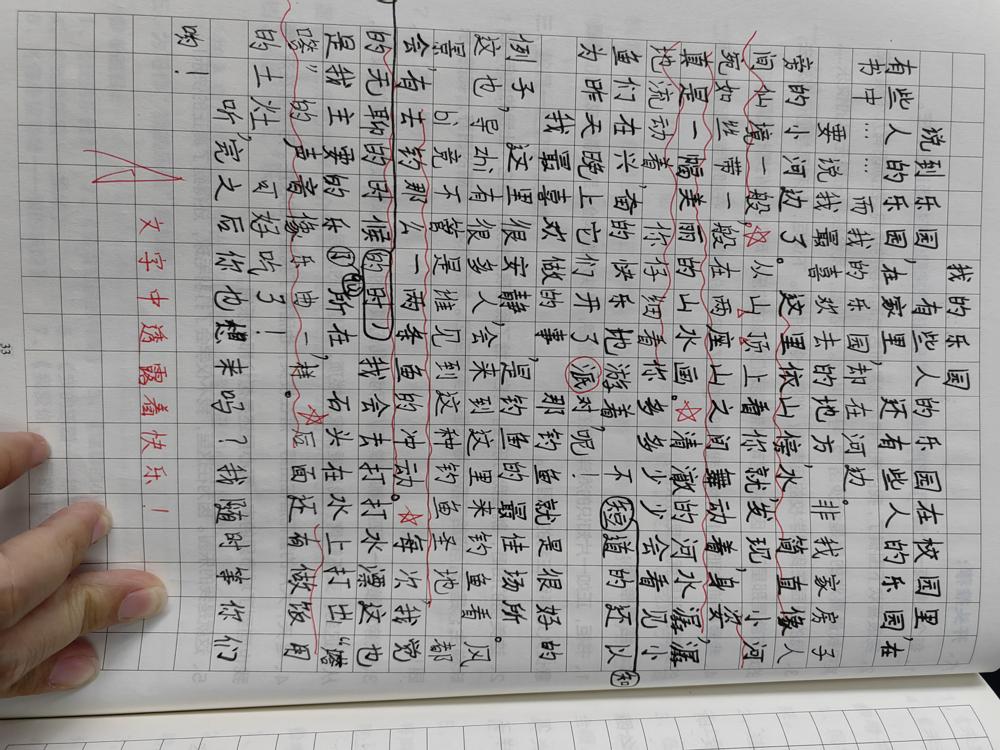 我的乐园
说到乐园，有些人的乐园在校园里，
有些人的乐园，在家里，还有些人的乐园，在
书中……而我的乐园却在河边。
要说我最喜欢去的地方，非我家房子
旁的小河边了。这里依山傍水，简直像人
间仙境一般，从山顶上看你就发现，小河
宛如丝带一般在两座山之间舞动着身姿，
真是一幅美丽的山水画。清澈的河水潺潺
地流动着，你仔细看你多多少少会看见小
鱼们在兴奋的快乐地游着，不短道的还以
知
为昨天晚上它们开了派对呢！
我最喜欢做的事，那钓鱼就是很好的
例子，这里很安静，是钓鱼的最佳场所。
这也导zhi有很多人会来到这里来钓鱼看风
景，bi竟不管是谁见到这种钓鱼圣地，都
会有去钓那么一两条鱼的冲动。每次我觉
的无聊的时候的时，我会去打打水漂这也
是我主要的乐所在，石头在水上打出“嗒
嗒”的声音像乐曲一样。后面还有做饭用
的土灶，可好吃了！
听完之后你也想来吗？我随时等你们
哟！
文字中透露着快乐！
33